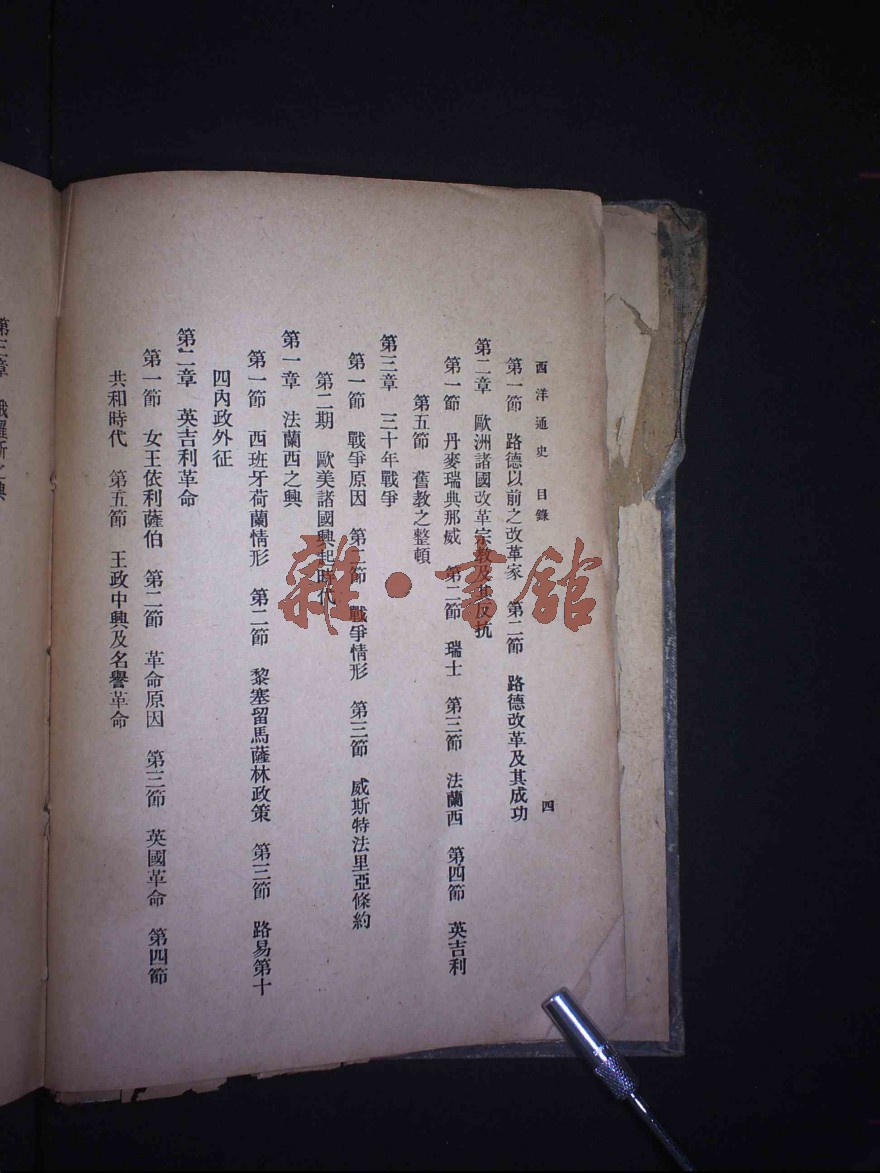 西洋通史 目錄 四
第一節 路德以前之改革家 第二節 路德改革及其成功
第二章 歐洲諸國改革宗教及其反抗
第一節 丹麥瑞典那威 第二節 瑞士 第三節 法蘭西 第四節 英吉利
第五節 舊教之整頓
第三章 三十年戰爭
第一節 戰爭原因 第二節 戰爭情形 第三節 威斯特法里亞條約
第二期 歐美諸國興起時代
第一章 法蘭西之興
第一節 西班牙荷蘭情形 第二節 黎塞留馬薩林政策 第三節 路易第十
四內政外征
第二章 英吉利革命
第一節 女王依利薩伯 第二節 革命原因 第三節 英國革命 第四節
共和時代 第五節 王政中興及名譽革命
第三章 俄羅斯之興
雜·書館